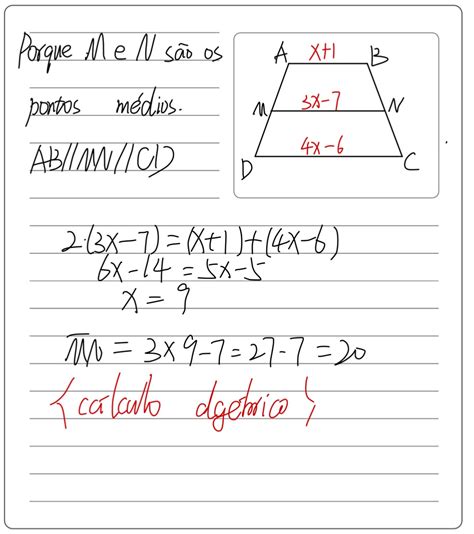 Porque M e N são os
pontos médios.
AB//MN//CD
A x+1 B
M 3x-7 N
4x-6
D C
2·(3x-7)=(x+1)+(4x-6)
6x-14=5x-5
x=9
MN=3×9-7=27-7=20
{cálculo algébrico}